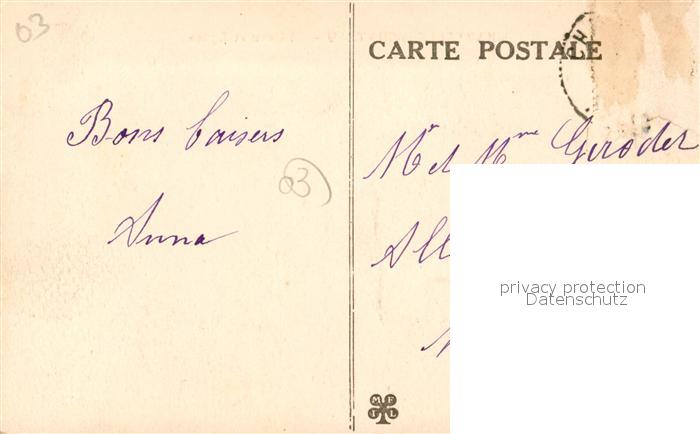 03
CARTE POSTALE
Bons baisers
03
Anna
Mr et Mme Giroder
All
privacy protection
Datenschutz
M F
T L